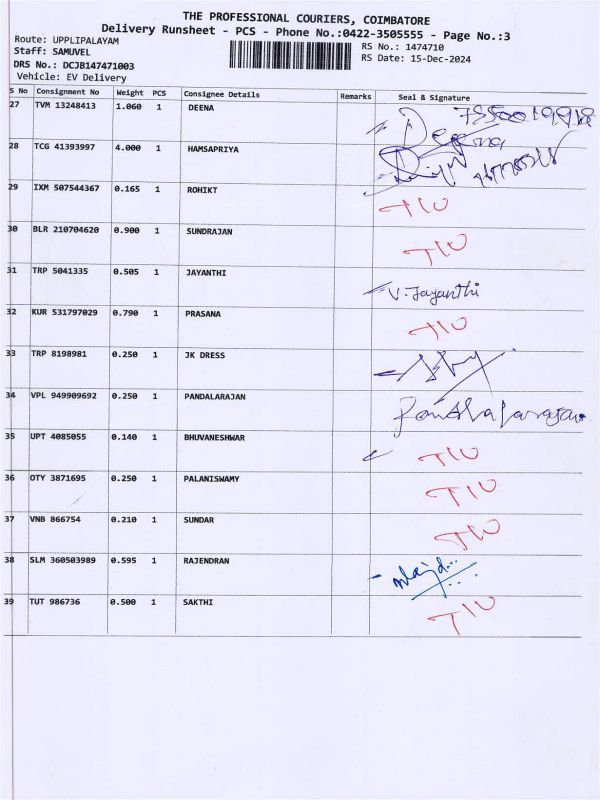 THE PROFESSIONAL COURIERS, COIMBATORE
Delivery Runsheet - PCS - Phone No.:0422-3505555 - Page No.:3
Route: UPPLIPALAYAM
RS No.: 1474710
Staff: SAMUVEL
RS Date: 15-Dec-2024
DRS No.: DCJB147471003
Vehicle: EV Delivery
S No Consignment No Weight PCS Consignee Details Remarks Seal & Signature
27 TVM 13248413 1.060 1 DEENA Deena
28 TCG 41393997 4.000 1 HAMSAPRIYA
29 IXM 507544367 0.165 1 ROHIKT TIU
30 BLR 210704620 0.900 1 SUNDRAJAN TIU
31 TRP 5041335 0.505 1 JAYANTHI V. Jayanthi
32 KUR 531797029 0.790 1 PRASANA TIU
33 TRP 8198981 0.250 1 JK DRESS
34 VPL 949909692 0.250 1 PANDALARAJAN
35 UPT 4085055 0.140 1 BHUVANESHWAR TIU
36 OTY 3871695 0.250 1 PALANISWAMY TIU
37 VNB 866754 0.210 1 SUNDAR TIU
38 SLM 360503989 0.595 1 RAJENDRAN
39 TUT 986736 0.500 1 SAKTHI TIU